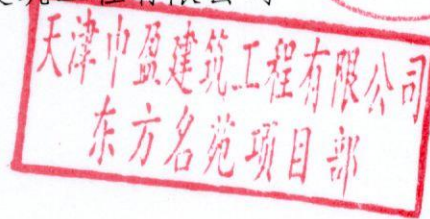 天津中盈建筑工程有限公司
东方名苑项目部